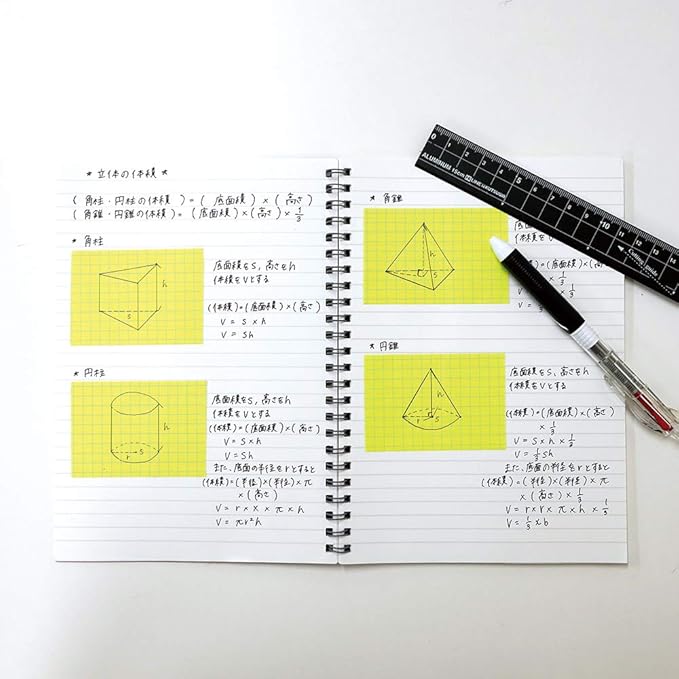 * 立体の体積 *
(角柱・円柱の体積)=(底面積)×(高さ)
(角錐・円錐の体積)=(底面積)×(高さ)×1/3
* 角柱
h
S
底面積をS, 高さをh
体積をVとする
(体積)=(底面積)×(高さ)
V = S × h
V = Sh
* 円柱
h
r S
底面積をS, 高さをh
体積をVとする
(体積)=(底面積)×(高さ)
V = S × h
V = Sh
また、底面の半径をrとすると
(体積)=(半径)×(半径)×π
×(高さ)
V = r × × × π × h
V = πr²h
* 角錐
h
S
底面
体積を
=(底面積)×(高さ)
× 1/3
* 円錐
h
r S
底面積をS, 高さをh
体積をVとする
(体積)=(底面積)×(高さ)
× 1/3
V = S × h × 1/3
V = 1/3 Sh
また、底面の半径をrとすると
(体積)=(半径)×(半径)×π
×(高さ)× 1/3
V = r × r × π × h × 1/3
V = 1/3
0 1 2 3 4 5 6 7 8 9 10 11 12 13 14
ALUMINUM 15cm
Cutting guide